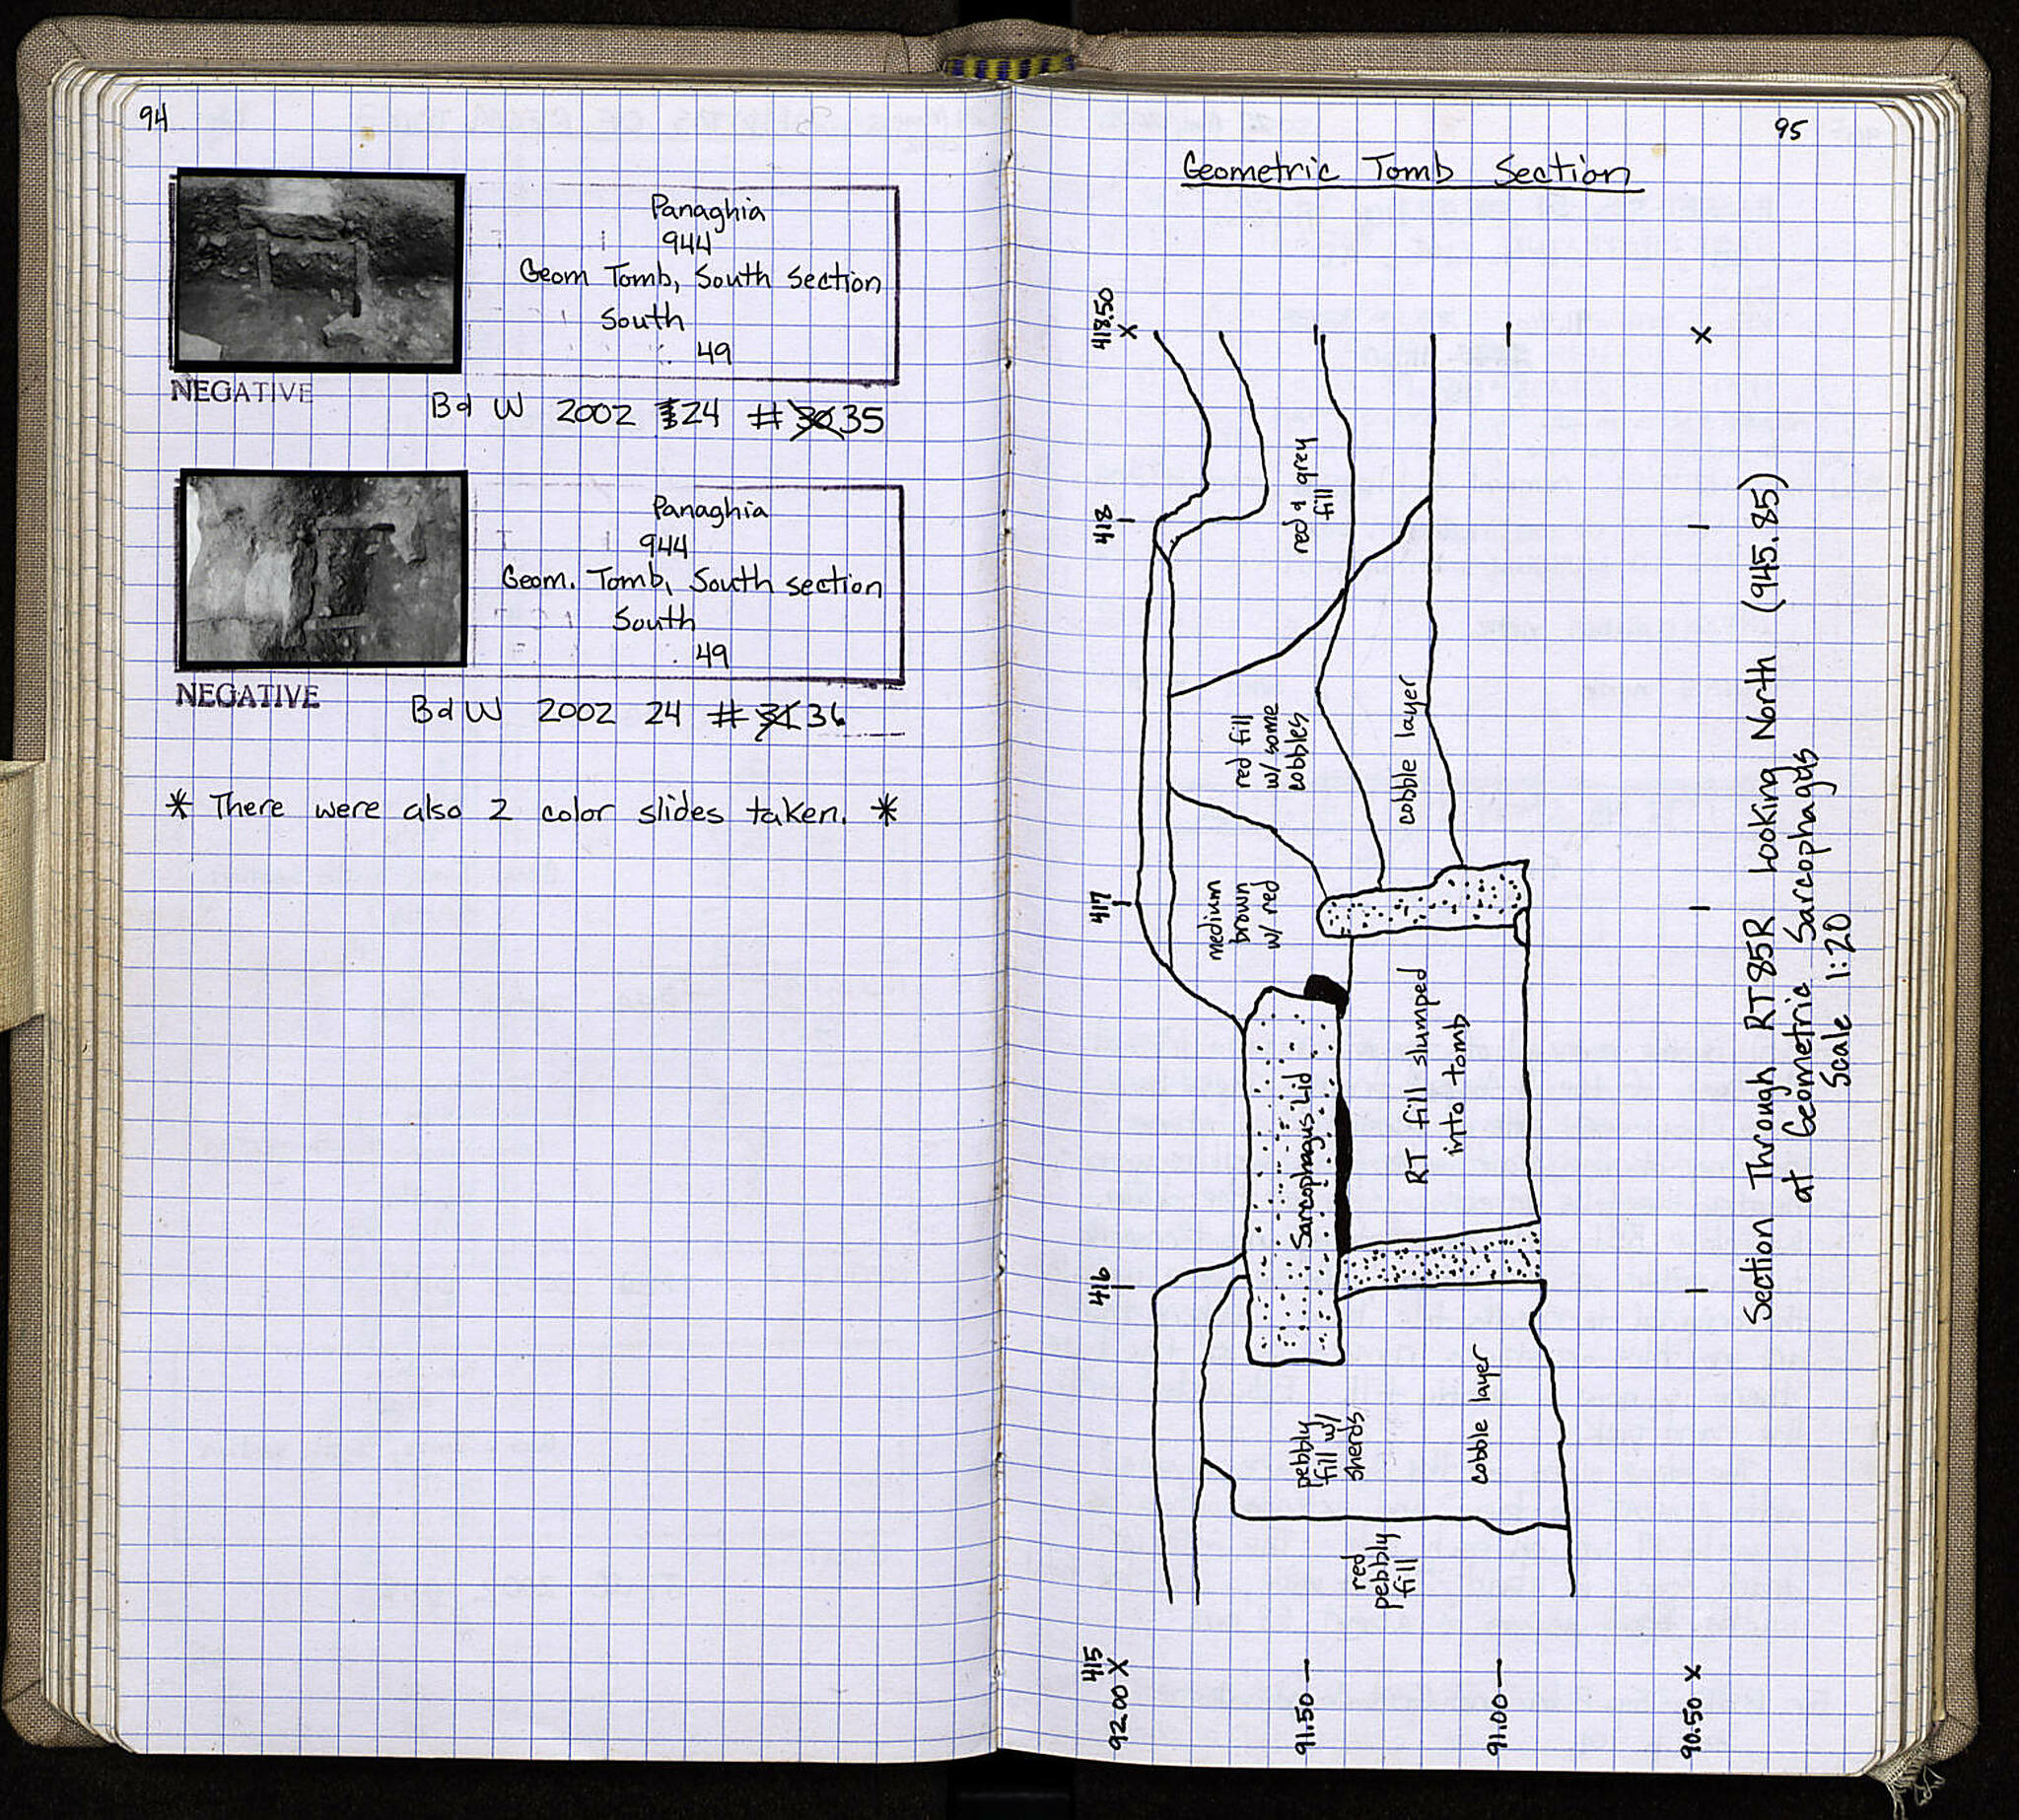 94
Panaghia
944
Geom Tomb, South Section
South
49
NEGATIVE
Bd W 2002 24 # 35
Panaghia
944
Geom. Tomb, South section
South
49
NEGATIVE
Bd W 2002 24 # 36
* There were also 2 color slides taken. *
95
Geometric Tomb Section
418.50
418
417
416
415
92.00
91.50
91.00
90.50
red & grey
fill
red fill
w/ some
cobbles
cobble layer
medium
brown
w/ red
Sarcophagus Lid
RT fill slumped
into tomb
pebbly
fill w/
sherds
cobble layer
red
pebbly
fill
Section Through RT85R Looking North (945.85)
at Geometric Sarcophagus
Scale 1:20